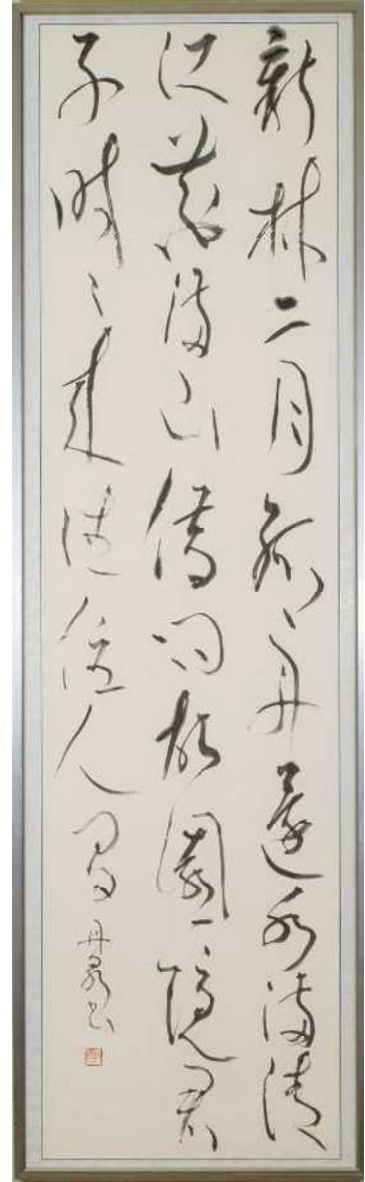 新林二月孤舟還水滿清
江花滿山借問故園隱君
子時々来往住人間 丹書